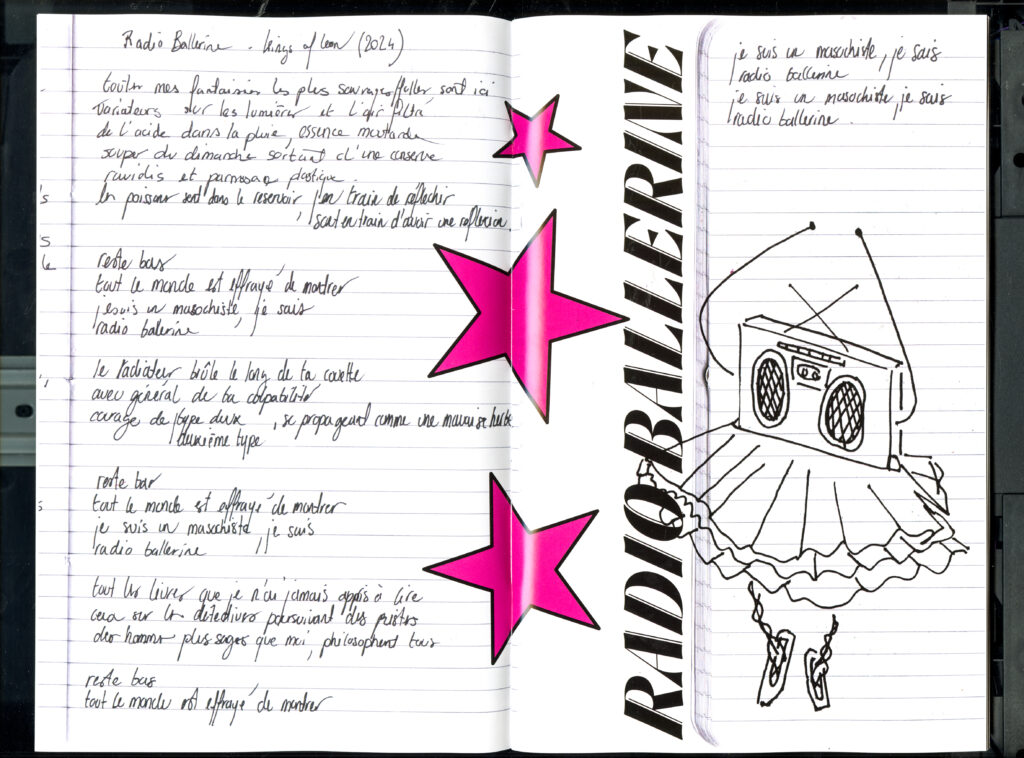 Radio Ballerine - Kings of Leon (2024)
toutes mes fantaisies les plus sauvages filles sont ici
variateurs sur les lumières et l'air filtré
de l'acide dans la pluie, essence moutarde
souper du dimanche sortant d'une conserve
raviolis et parmesan plastique.
les poissons sont dans le reservoir j'en train de réfléchir
, sont en train d'avoir une réflexion.
's
s
le
reste bas
tout le monde est effrayé de montrer
je suis un masochiste, je sais
radio ballerine
le radiateur brûle le long de ta couette
avec général de ta culpabilité
courage de type deux, se propageant comme une mauvaise herbe
deuxième type
reste bas
tout le monde est effrayé de montrer
je suis un masochiste, je sais
radio ballerine
tout les livres que je n'ai jamais appris à lire
ceux sur les détectives poursuivant des prêtres
des hommes plus sages que moi, philosophent tous
reste bas
tout le monde est effrayé de montrer
RADIO BALLERINE
je suis un masochiste, je sais
radio ballerine
je suis un masochiste je sais
radio ballerine.